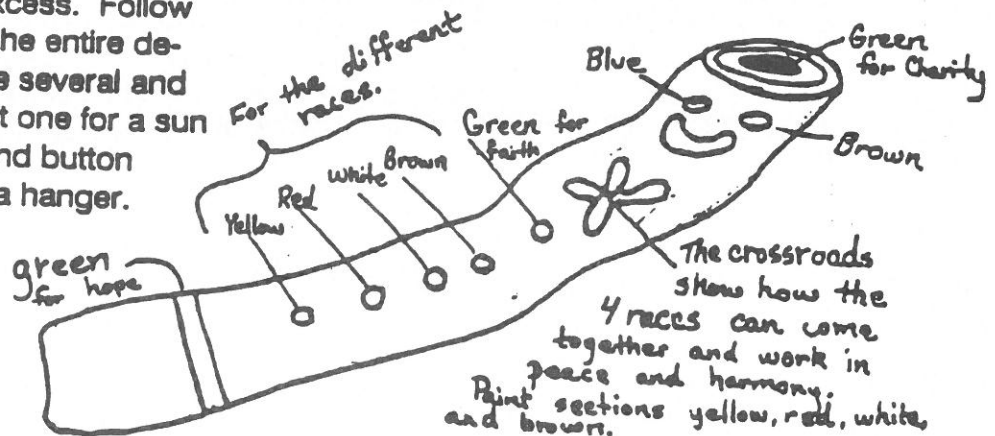 xcess. Follow
he entire de-
e several and
t one for a sun
nd button
a hanger.
For the different
races.
Blue
Green
for Charity
Green for
faith
Brown
Yellow
Red
white
Brown
green
for hope
The crossroads
show how the
4 races can come
together and work in
peace and harmony.
Paint sections yellow, red, white,
and brown.